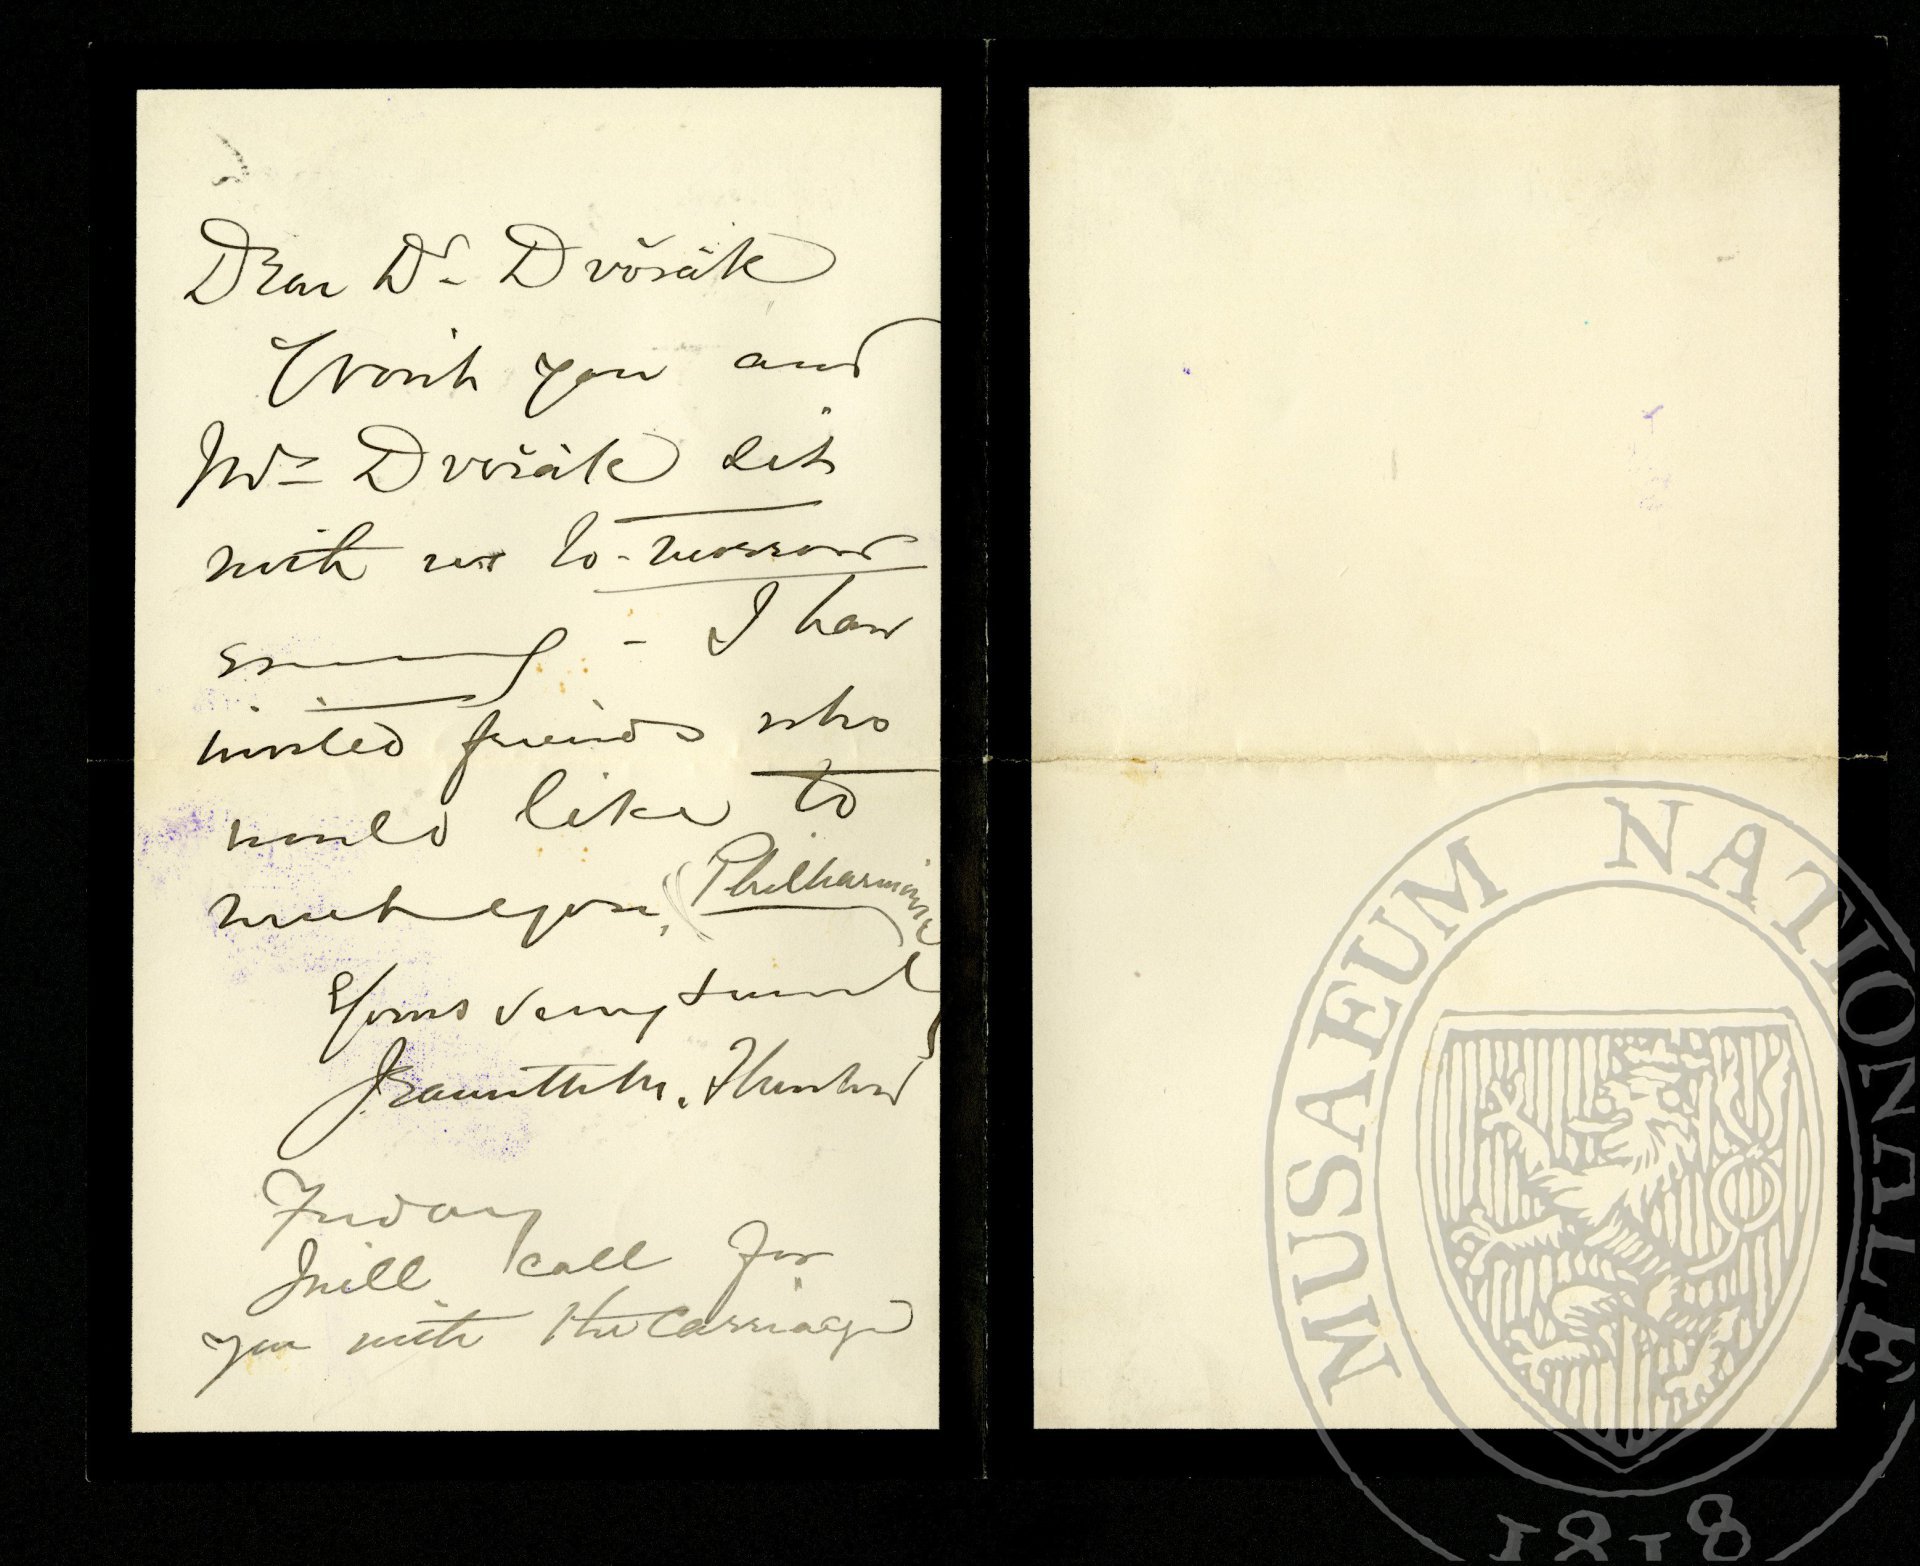 Dear Dr. Dvořák
Won't you and
Mrs Dvořák sit
with us to-morrow
evening - I have
invited friends who
would like to
meet you, (Philharmonic)
Yours very sincerely
Jeannette M. Thurber
Friday
Will call for
you with the Carriage
MUSAEUM NATIONALE
1818